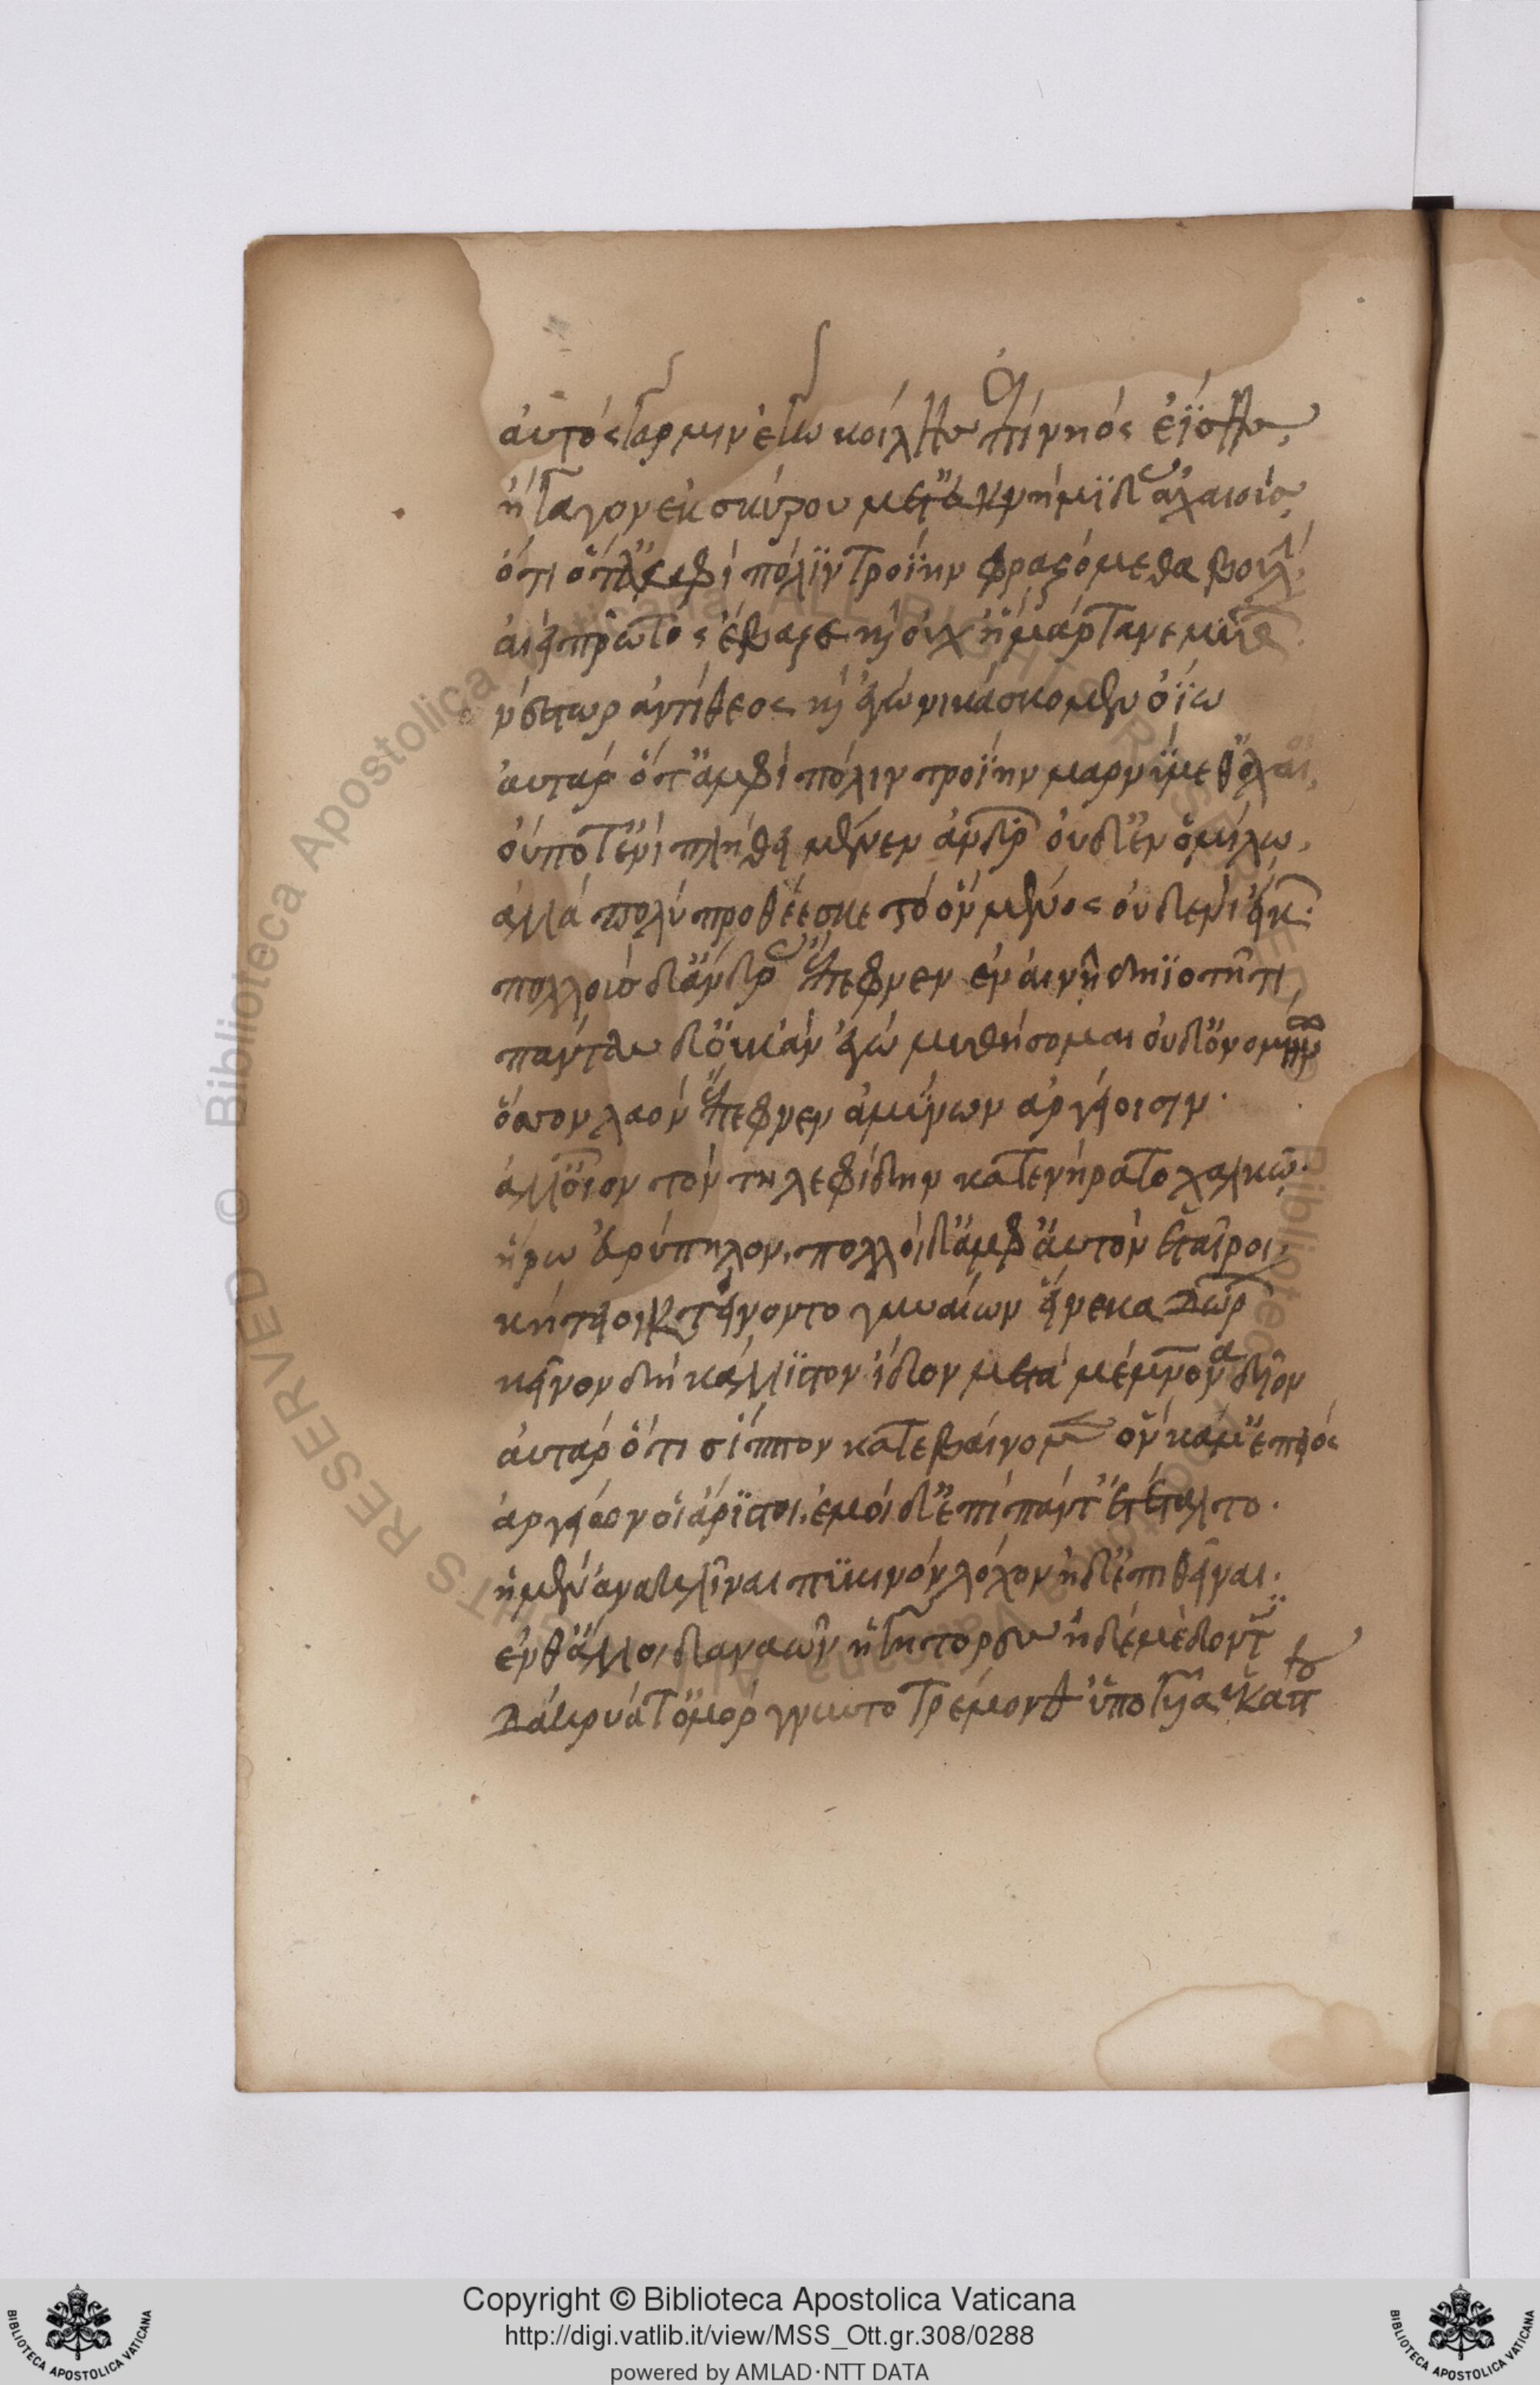 αὐτὸς γάρ μιν ἐγὼ κοίλης ἐπὶ νηὸς ἐΐσης,
ἤγαγον ἐκ σκύρου μετ' ἐϋκνήμιδας ἀχαιούς
ὅτι ὅτ' ἀμφὶ πόλιν τροίην φραζόμεθα βουλ
αἰεὶ πρῶτος ἔβαζε καὶ οὐχ ἡμάρτανε μύθ
νέστωρ ἀντίθεος καὶ ἐγὼ νικάσκομεν οἴω
αὐταρ ὅτ' ἀμφὶ πόλιν τροίην μαρνοίμεθ' ἀχαιοι,
οὔποτ' ἐνὶ πληθεῖ μένεν ἀνδρ οὐδ' ἐν ὁμίλω,
ἀλλὰ πολὺ προθέεσκε τὸ ὃν μένος οὐδενὶ εἴκ.
πολλοὺς δ' ἄνδρας ἔπεφνεν ἐν αἰνῆ δηϊοτῆτι,
πάντας δ' οὐκ ἂν ἐγὼ μυθήσομαι οὐδ' ὀνομήνω
ὅσσον λαὸν ἔπεφνεν ἀμύνων ἀργείοισιν.
ἀλλ' οἷον τὸν τηλεφίδην κατενήρατο χαλκῶ.
ἥρω' εὐρύπηλον, πολλοὶ δ' ἀμφ' αὐτὸν ἑταῖροι,
κήτειοι κτείνοντο γυναίων εἵνεκα δώρ
κεῖνον δὴ κάλλιστον ἴδον μετὰ μέμνονα δῖον
αὐτὰρ ὅτι σ ἵππον κατεβαίνομεν ὃν κάμ' ἐπειός
ἀργείων οἱ ἄριστοι, ἐμοὶ δ' ἐπὶ πάντ' ἐτέταλτο.
ἠμὲν ἀνακλῖναι πυκινὸν λόχον ἠδ' ἐπιθεῖναι.
ἐνθ' ἄλλοι δαναῶν ἡγήτορες ἠδὲ μέδοντ
δάκρυά τ' ὀμόργνυντο τρέμον θ' ὑπὸ γυῖα ἑκάστου
Copyright © Biblioteca Apostolica Vaticana
http://digi.vatlib.it/view/MSS_Ott.gr.308/0288
powered by AMLAD·NTT DATA